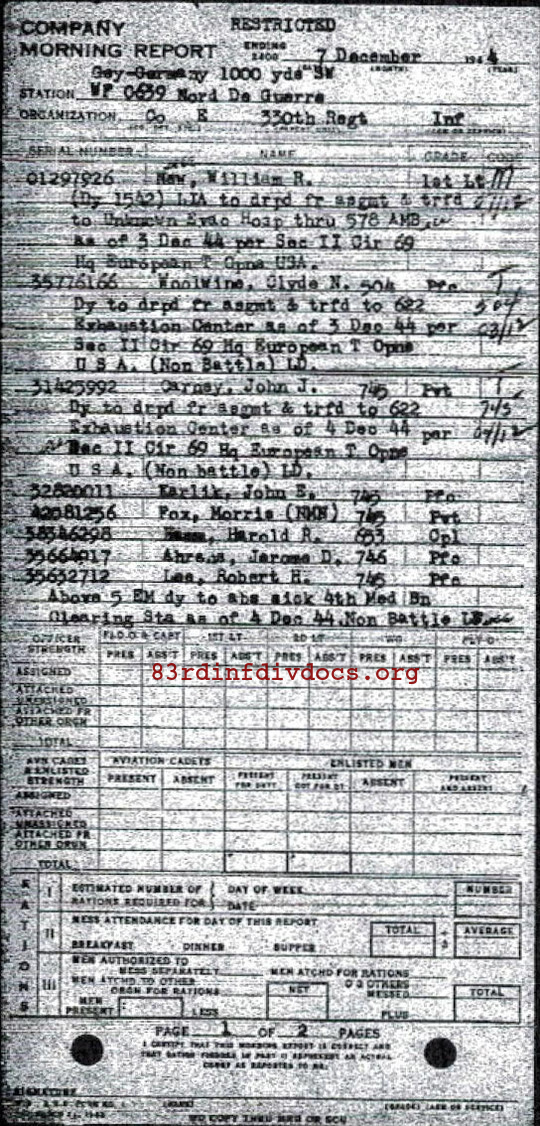 COMPANY RESTRICTED
MORNING REPORT ENDING 2400 7 December 1944
Gey-Germany 1000 yds SW
STATION WF 0639 Nord De Guerre
ORGANIZATION Co E 330th Regt Inf
SERIAL NUMBER NAME GRADE CODE
01297926 William R. 1st Lt
(Dy 1542) LIA to drpd fr asgmt & trfd
to Unknown Evac Hosp thru 578 AMB
as of 3 Dec 44 per Sec II Cir 69
Hq European T Opns USA.
35776166 Woolwine, Clyde N. 504 Pfc
Dy to drpd fr asgmt & trfd to 622 504
Exhaustion Center as of 3 Dec 44 per
Sec II Cir 69 Hq European T Opns
U S A. (Non Battle) LD.
31425992 Carney, John J. 745 Pvt
Dy to drpd fr asgmt & trfd to 622 745
Exhaustion Center as of 4 Dec 44 per
Sec II Cir 69 Hq European T Opns
U S A. (Non battle) LD.
32820011 Karlik, John E. 745 Pfc
42081256 Fox, Morris (NMN) 745 Pvt
38346298 Harold R. 653 Cpl
35664917 Ahrens, Jerome D. 746 Pfc
35652712 Lee, Robert H. 745 Pfc
Above 5 EM dy to abs sick 4th Med Bn
Clearing Sta as of 4 Dec 44. Non Battle
OFFICER STRENGTH FLD O & CAPT 1ST LT 2D LT WO FLT O
PRES ABS'T PRES ABS'T PRES ABS'T PRES ABS'T PRES ABS'T
83rdinfdivdocs.org
ASSIGNED
ATTACHED UNASSIGNED
ATTACHED FR OTHER ORGN
TOTAL
AVN CADET & ENLISTED STRENGTH AVIATION CADETS ENLISTED MEN
PRESENT ABSENT PRESENT FOR DUTY PRESENT NOT FOR DY ABSENT PRESENT AND ABSENT
ASSIGNED
ATTACHED UNASSIGNED
ATTACHED FR OTHER ORGN
TOTAL
RATIONS
I ESTIMATED NUMBER OF DAY OF WEEK NUMBER
RATIONS REQUIRED FOR DATE
II MESS ATTENDANCE FOR DAY OF THIS REPORT TOTAL AVERAGE
BREAKFAST DINNER SUPPER ÷ 3
III MEN AUTHORIZED TO MESS SEPARATELY MEN ATCHD FOR RATIONS
MEN ATCHD TO OTHER ORGN FOR RATIONS NET OTHERS MESSED TOTAL
MEN PRESENT LESS PLUS
PAGE 1 OF 2 PAGES
I CERTIFY THAT THIS MORNING REPORT IS CORRECT AND
SIGNATURE